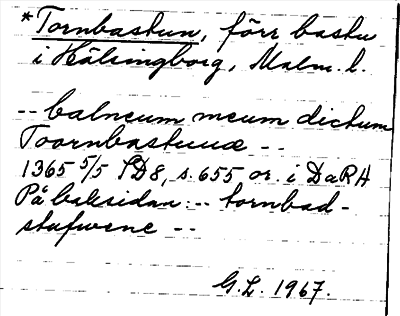 *Tornbastun, förr bastu
i Hälsingborg, Malm. l.
-- balneum meum dictum
Toornbastuuæ --
1365 5/5 SD8, s. 655 or. i DaRA
På baksidan: -- tornbad-
stufwene --
G.L. 1967.